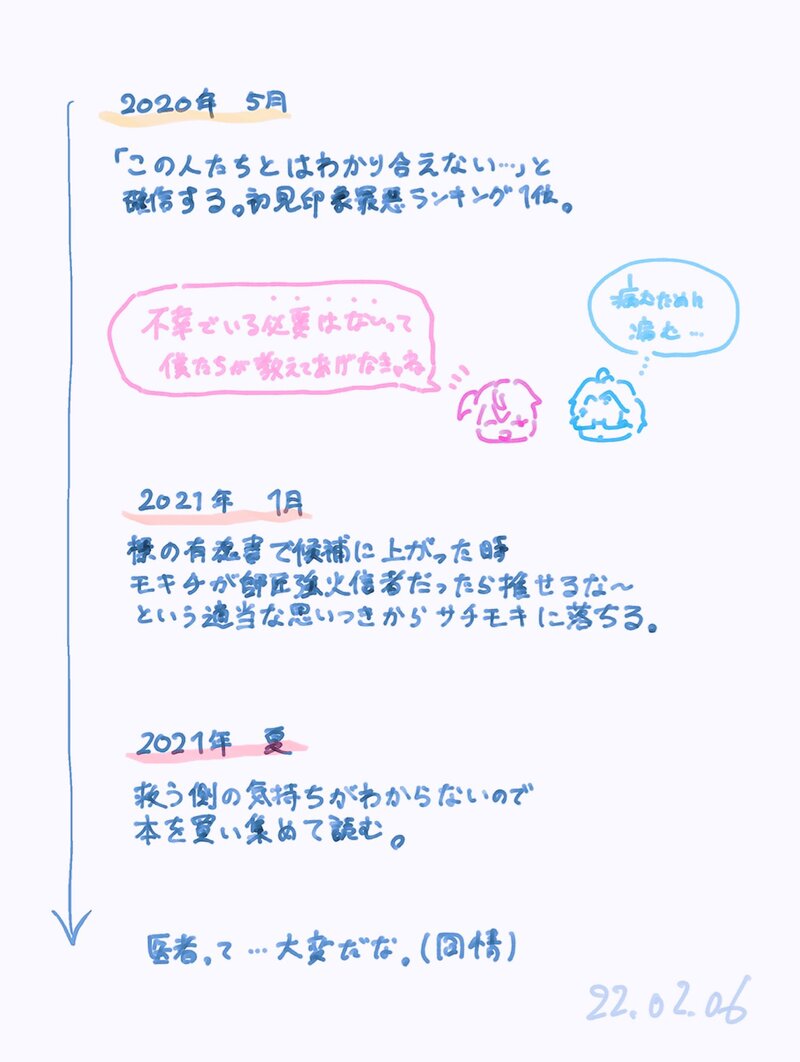 2020年 5月
「この人たちとはわかり合えない…」と
確信する。初見印象最悪ランキング1位。
不幸でいる必要はないって
僕たちが教えてあげなきゃね
病むために
病む…
2021年 1月
様の有志書で候補に上がった時
モキチが師匠強火信者だったら推せるな～
という適当な思いつきからサチモキに落ちる。
2021年 夏
救う側の気持ちがわからないので
本を買い集めて読む。
医者って…大変だな。(同情)
22.02.06